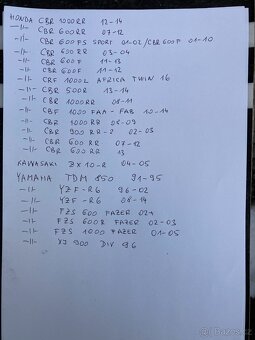 HONDA CBR 1000RR 12-14
-11- CBR 600RR 07-12
-11- CBR 600FS SPORT 01-02/CBR 600F 01-10
-11- CBR 600 RR 03-04
-11- CBR 600F 11-13
-11- CBR 600F 11-12
-11- CRF 1000L AFRICA TWIN 16
-11- CBR 500R 13-14
-11- CBR 1000RR 08-11
-11- CBF 1000 FAA-FAB 10-14
-11- CBR 1000RR 08-09
-11- CBR 900 RR-2 02-03
-11- CBR 600 RR 07-12
-11- CBR 600 RR 13
KAWASAKI ZX 10-R 04-05
YAMAHA TDM 850 91-95
-11- YZF-R6 96-02
-11- YZF-R6 08-14
-11- FZS 600 FAZER
-11- FZS 600R FAZER 02-03
-11- FZS 1000 FAZER 01-05
-11- XJ 900 DIV 96
bazos.cz